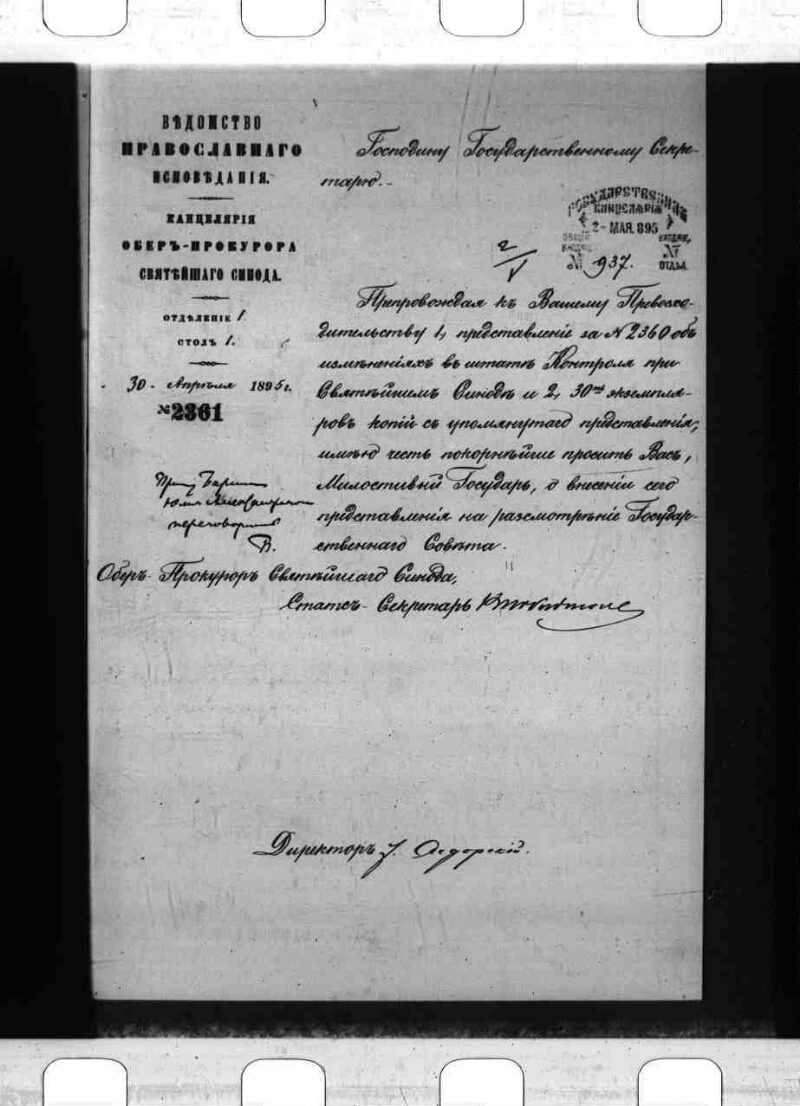 ВѢДОМСТВО
ПРАВОСЛАВНАГО
ИСПОВѢДАНІЯ.
КАНЦЕЛЯРІЯ
ОБЕРЪ-ПРОКУРОРА
СВЯТѢЙШАГО СИНОДА.
ОТДѢЛЕНІЕ 1.
СТОЛЪ 1.
30 апрѣля 1895 г.
№ 2361
Господину Государственному Секре-
тарю.
ГОСУДАРСТВЕННАЯ
КАНЦЕЛЯРІЯ
2 - МАЯ. 895
№ 937.
ОТДѢЛ.
2/V
Препровождая къ Вашему Превосхо-
дительству 1, представленіе за № 2360 объ
измѣненіяхъ въ штатѣ Контроля при
Святѣйшемъ Синодѣ и 2, 30ть экземпля-
ровъ копій съ упомянутаго представленія,
имѣю честь покорнѣйше просить Васъ,
Милостивый Государь, о внесеніи сего
представленія на разсмотрѣніе Государ-
ственнаго Совѣта.
переговорить
Оберъ-Прокуроръ Святѣйшаго Синода,
Статсъ-Секретарь
Директоръ